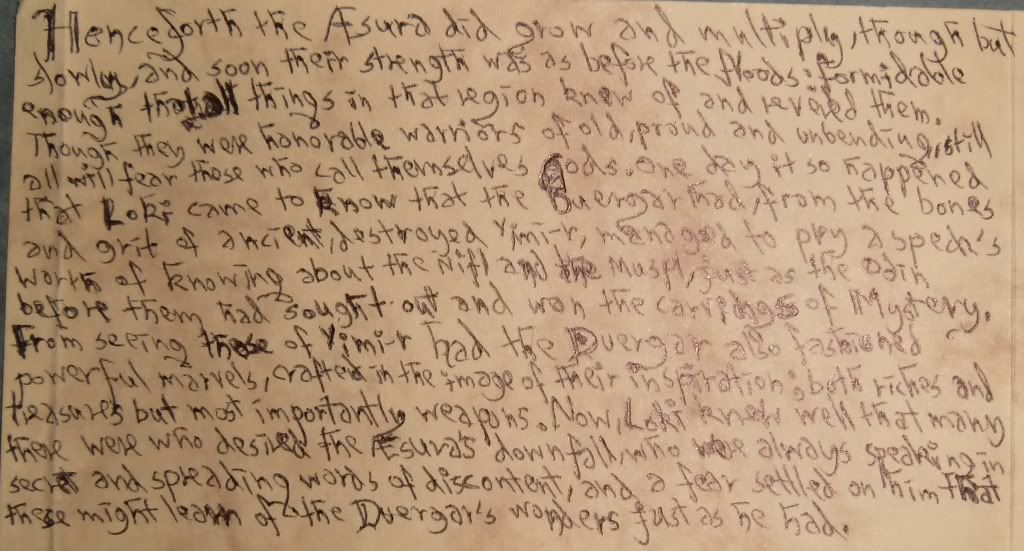 Henceforth the Æsura did grow and multiply, though but
slowly, and soon their strength was as before the floods: formidable
enough that all things in that region knew of and revered them.
Though they were honorable warriors of old, proud and unbending, still
all will fear those who call themselves Gods. One day it so happened
that Loki came to know that the Duergar had, from the bones
and grit of ancient, destroyed Yimi-r, managed to pry a speck's
worth of knowing about the Nifl and the Muspl, just as the Odin
before them had sought out and won the carvings of Mystery.
From seeing those of Yimi-r had the Duergar also fashioned
powerful marvels, crafted in the image of their inspiration; both riches and
treasures but most importantly weapons. Now, Loki knew well that many
there were who desired the Æsura's downfall, who were always speaking in
secret and spreading words of discontent, and a fear settled on him that
these might learn of the Duergar's wonders just as he had.